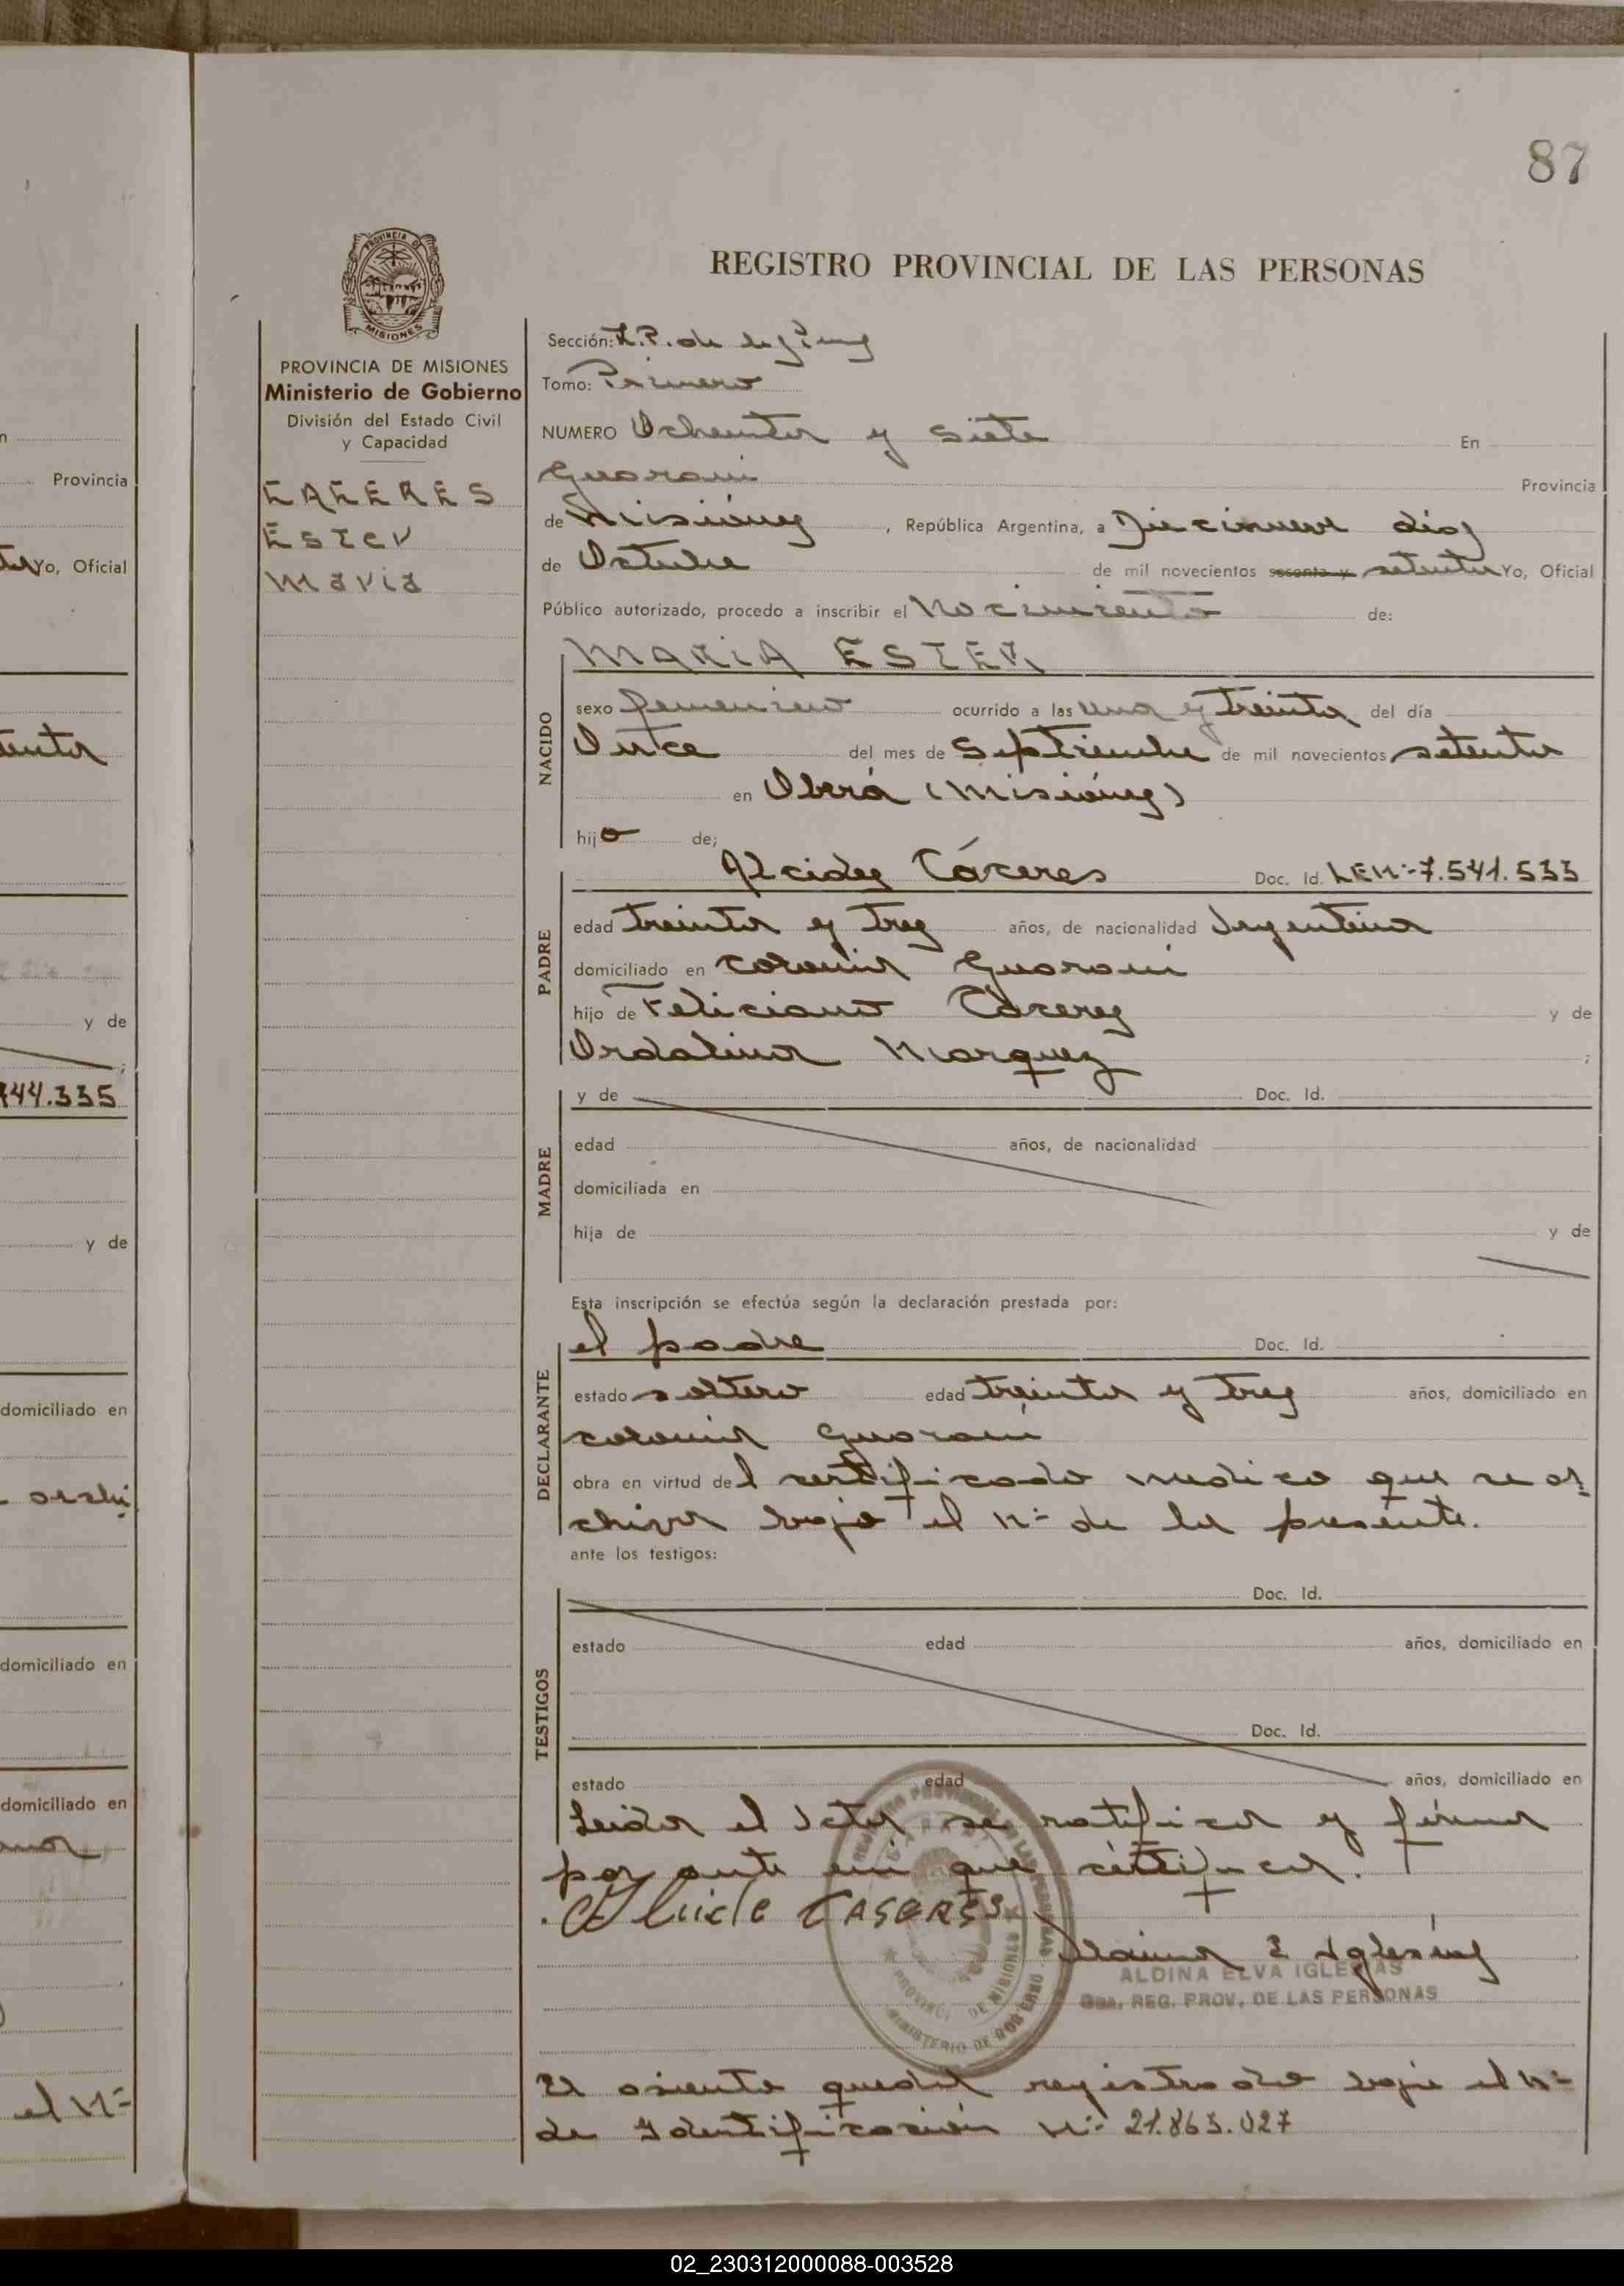 87
PROVINCIA DE MISIONES
REGISTRO PROVINCIAL DE LAS PERSONAS
PROVINCIA DE MISIONES
Ministerio de Gobierno
División del Estado Civil
y Capacidad
CACERES
Ester
Maria
Sección:
Tomo: Primero
NUMERO Ochenta y siete En
Guarani Provincia
de Misiónes, República Argentina, a Diecinueve días
de Octubre de mil novecientos sesenta y setenta Yo, Oficial
Público autorizado, procedo a inscribir el Nacimiento de:
MARIA ESTER
NACIDO
sexo femenino ocurrido a las una y treinta del día
Once del mes de Septiembre de mil novecientos setenta
en Oberá (Misiónes)
hijo de;
PADRE
Alcides Cáceres Doc. Id. LENº-7.541.533
edad treinta y tres años, de nacionalidad Argentina
domiciliado en colonia Guarani
hijo de Feliciano Cáceres y de
Ordalina Marquez ;
MADRE
y de Doc. Id.
edad años, de nacionalidad
domiciliada en
hija de y de
Esta inscripción se efectúa según la declaración prestada por:
DECLARANTE
el padre Doc. Id.
estado soltero edad treinta y tres años, domiciliado en
colonia Guarani
obra en virtud del certificado medico que se ar
chiva bajo el Nº de la presente.
ante los testigos:
TESTIGOS
Doc. Id.
estado edad años, domiciliado en
Doc. Id.
estado edad años, domiciliado en
Leida el Acta se ratifica y firma
por ante mi que certifica.
CASERES
E Iglesias
ALDINA ELVA IGLESIAS
REG. PROV. DE LAS PERSONAS
PROVINCIA DE MISIONES
MINISTERIO DE GOBIERNO
El asiento queda registrado bajo el Nº
de Identificación Nº 21.863.027
n
Provincia
Yo, Oficial
y de
;
444.335
y de
domiciliado en
domiciliado en
domiciliado en
el Nº
02_230312000088-003528